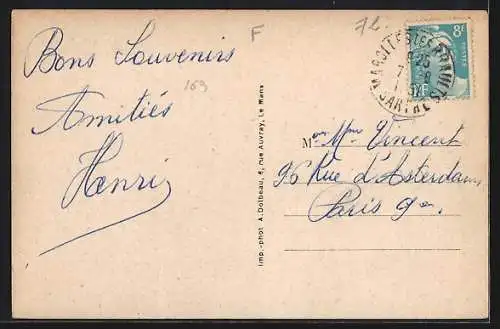 Bons Souvenirs
Amitiés
Henri
169
F
72
8F
SARTHE
Imp.-phot A. Dolbeau, 8, rue Auvray, Le Mans
M on Mme Vincent
96 Rue d'Asterdam
Paris 9e.